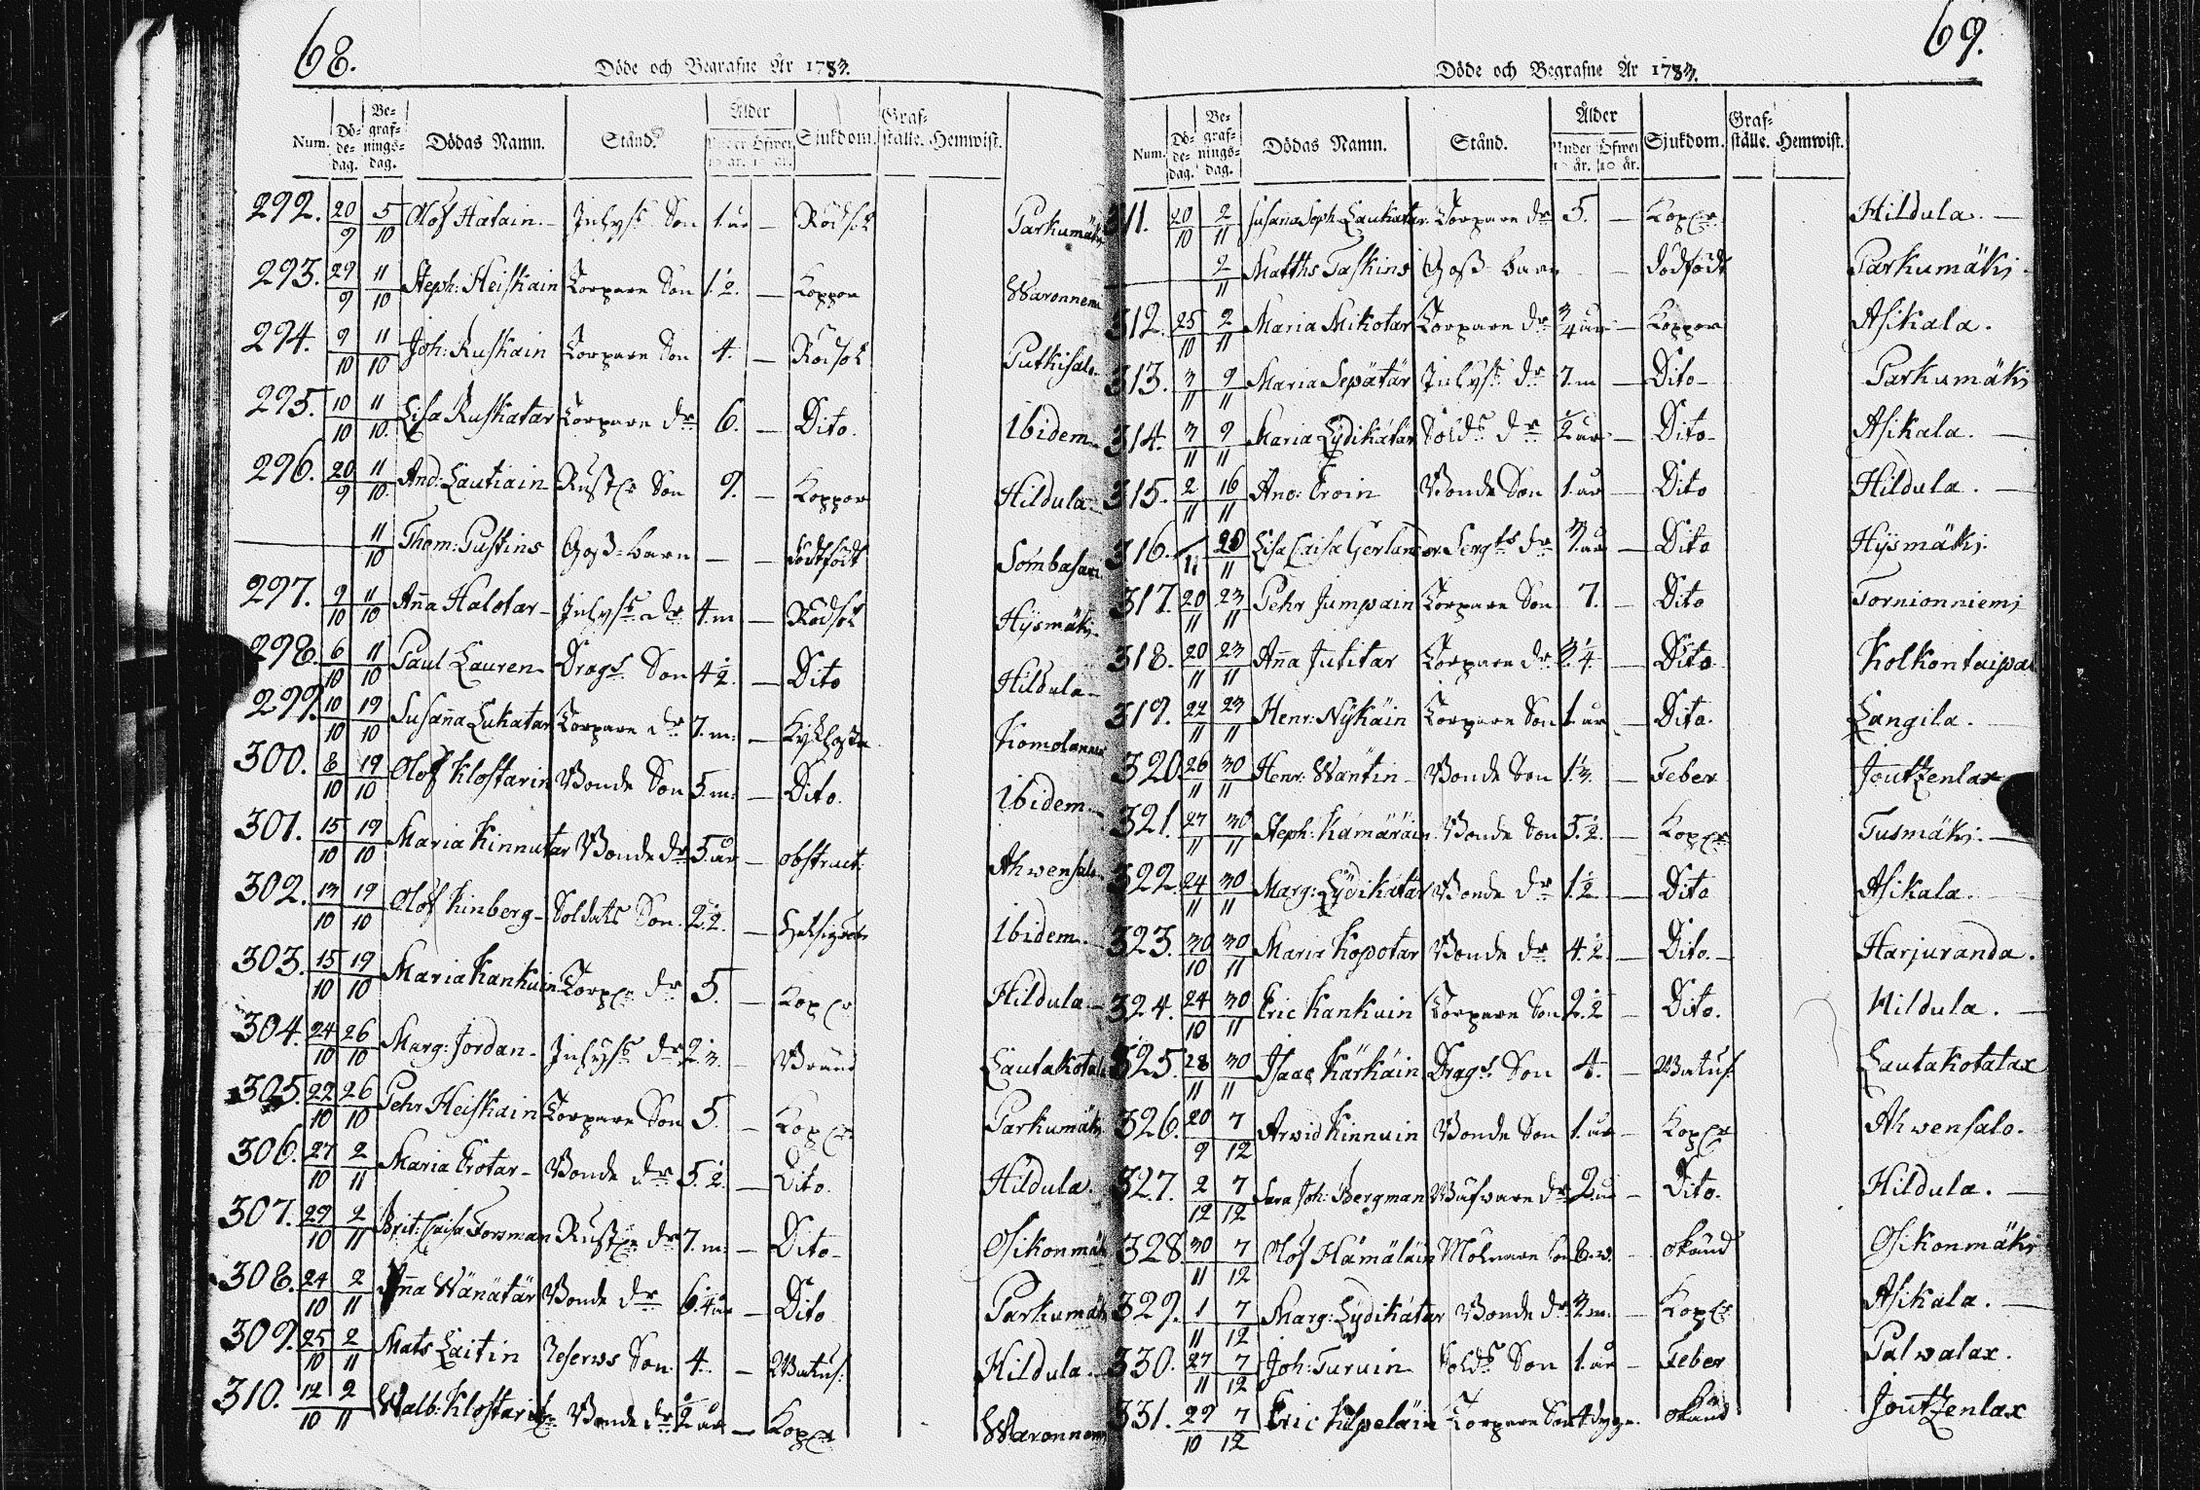 68.
Döde och Begrafne År 1783.
Num. Dö-de-dag. Be-graf-nings-dag. Dödas Namn. Stånd. Ålder Under 10 år. Öfwer 10 år. Sjukdom. Graf-ställe. Hemwist.
292. 20/9 5/10 Olof Hatain. Inhyss Son 1. år — Rödsot Parkumäki
293. 29/9 11/10 Steph: Heiskain Torpare Son 1.½. — Koppor Waronnem
294. 9/10 11/10 Joh: Ruskain Torpare Son 4. — Rödsot Putkisalo
295. 10/10 11/10. Lisa Ruskatar Torpare dr 6. — Dito. Ibidem
296. 20/9 11/10. And: Lautiain Rustr Son 9. — Koppor Hildula
— 11/10 Thom: Pustins Goss-barn — — dödfödt Sombasari
297. 9/10 11/10 Anna Halotar Inhyss dr 4. m — Rödsot Hysmäki
298. 6/10 11/10 Paul Lauren Drags Son 4½. — Dito Hildula
299. 10/10 19/10 Susanna Lukatar Torpare dr 7. m: — Kykhosta Komolanmä
300. 8/10 19/10 Olof Klostarin Bonde Son 5. m: — Dito. Ibidem
301. 15/10 19/10 Maria Kinnutar Bonde dr 5. år — obstruct: Ahwensalo
302. 13/10 19/10 Olof Kinberg Soldats Son 2.½. — Ibidem
303. 15/10 19/10 Maria Kankuin Torpr dr 5. — Kopr Hildula
304. 24/10 26/10 Marg: Jordan Inhyss dr — Lautakotala
305. 22/10 26/10 Pehr Heiskain Torpare Son 5. — Kopr Parkumäki
306. 27/10 2/11 Maria Erotar Bonde dr 5.½. — Dito. Hildula.
307. 29/10 2/11 Brit: Caisa Forsman Rustr dr 7. m: — Dito Osikonmäki
308. 24/10 2/11 Anna Wänätär Bonde dr 6.¼ år — Dito Parkumäki
309. 25/10 2/11 Mats Laitin Reserws Son 4. — Hildula
310. 12/10 2/11 Walb: Klostari Bonde dr ½ år — Kopr Waronnem
69.
Döde och Begrafne År 1783.
Num. Dö-de-dag. Be-graf-nings-dag. Dödas Namn. Stånd. Ålder Under 10 år. Öfwer 10 år. Sjukdom. Graf-ställe. Hemwist.
311. 20/10 2/11 Susana Soph: Laukatar Torpare dr 5. — Kopr Hildula.
— 2/11 Matths Taskins Goss-barn — dödfödt Parkumäki
312. 25/10 2/11 Maria Mikotar Torpare dr ¾ år — Koppor Asikala.
313. 3/11 9/11 Maria Sepätär Inhyss dr 7. m — Dito Parkumäki
314. 3/11 9/11 Maria Lydikätär Solds dr ½ år — Dito Asikala.
315. 2/11 16/11 And: Eroin Bonde Son 1. år — Dito Hildula.
316. 11 11 Lisa Caisa Gerlander Sergts dr — Dito Hysmäki
317. 20/11 23/11 Pehr Jumpain Torpare Son 7. — Dito Tornionniemi
318. 20/11 23/11 Anna Jutitar Torpare dr 3.¼ — Dito Kolkontaipal
319. 22/11 23/11 Henr: Nykäin Torpare Son 1. år — Dito. Langila.
320. 26/11 30/11 Henr: Wäntin Bonde Son — Feber Joutzenlax
321. 27/11 30/11 Steph: Kämäräin Bonde Son 5.½. — Kopr Tusmäki.
322. 24/11 30/11 Marg: Lydikätär Bonde dr 1.½ — Dito Asikala.
323. 30/10 30/11 Maria Kopotar Bonde dr 4.½ — Dito. Harjuranda.
324. 24/10 30/11 Eric Kankuin Torpare Son 2.½ — Dito. Hildula.
325. 28/11 30/11 Isaac Kärkäin Drags Son 4. — Lautakotalax
326. 20/9 7/12 Arwid Kinnuin Bonde Son 1. år — Kopr Ahwensalo.
327. 2/12 7/12 Sara Joh: Bergman dr 2. år — Dito. Hildula.
328. 30/11 7/12 Olof Hämäläin Mölnare Son 6. w. — okänd Osikonmäki
329. 1/11 7/12 Marg: Lydikätar Bonde dr 3. m: — Kopr Asikala.
330. 27/11 7/12 Joh: Turuin Solds Son 1. år — Feber Palwalax.
331. 29/10 7/12 Eric Kilpeläin Torpare Son — okänd Joutzenlax